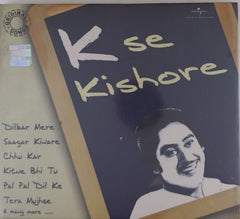 ORIGINAL
SONGS
K se
Kishore
Dilbar Mere
Saagar Kinare
Chhu Kar
Kitne Bhi Tu
Pal Pal Dil Ke
Tera Mujhse
& many more .....